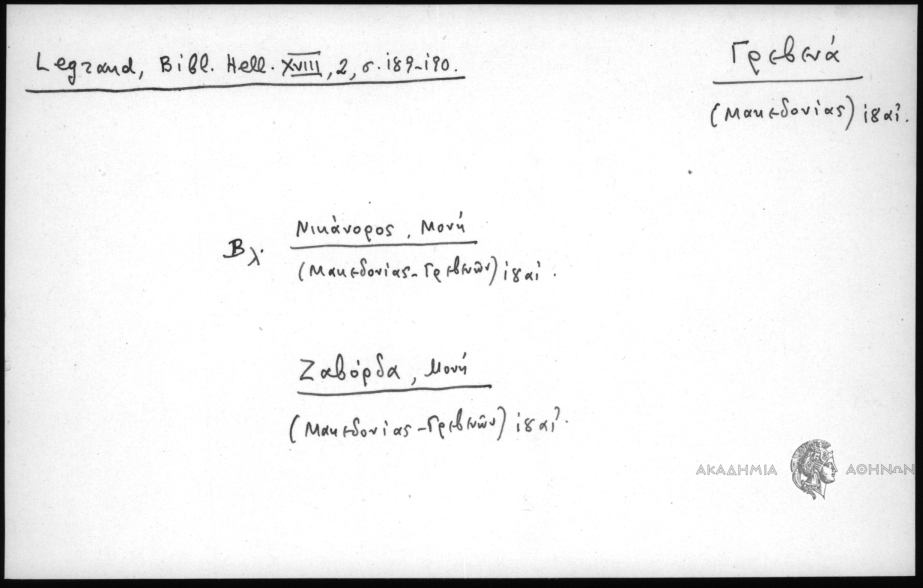 Legrand, Bibl. Hell. XVIII, 2, σ. 189-190.
Γρεβενά
(Μακεδονίας) ιη αἰ.
Βλ. Νικάνορος, Μονή
(Μακεδονίας-Γρεβενῶν) ιη αἰ.
Ζαβόρδα, Μονή
(Μακεδονίας-Γρεβενῶν) ιη αἰ.
ΑΚΑΔΗΜΙΑ ΑΘΗΝΩΝ